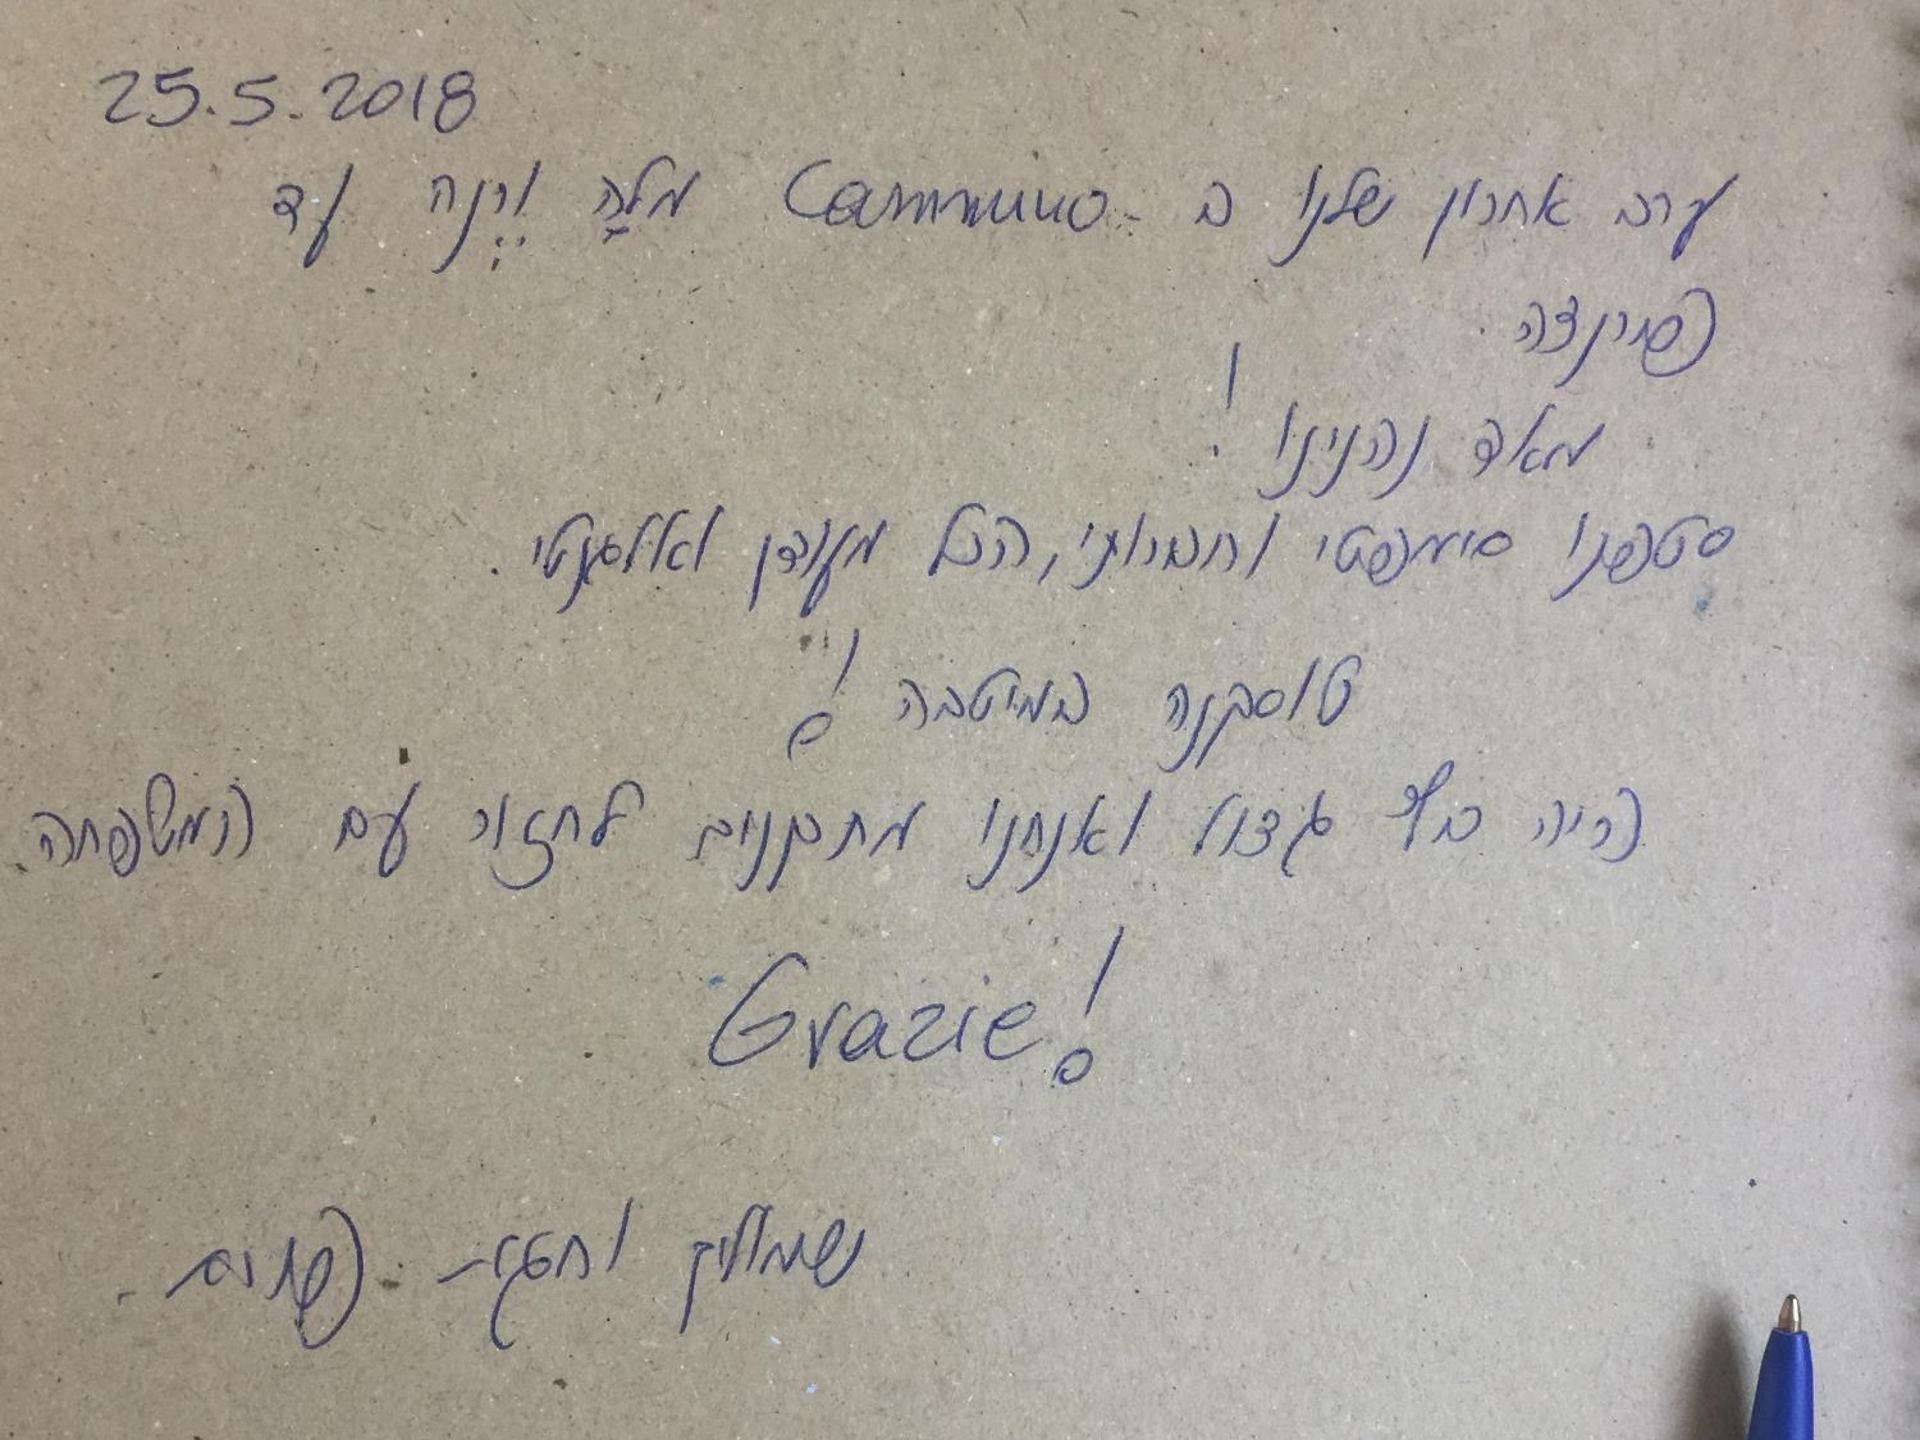 25.5.2018
ערב אחרון שלנו ב - Cammino מלה ורנה עד
פירנצה.
מאד נהנינו!
סטפנו סימפטי וחברותי, הכל מעודן ואלגנטי.
טוסקנה במיטבה!
היה כיף גדול ואנחנו מתכננים לחזור עם המשפחה.
Grazie!
שמוליק וחגי -